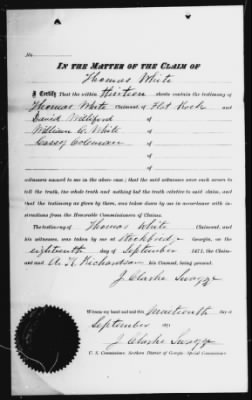 No.
In the Matter of the Claim of
Thomas White
I Certify That the within thirteen sheets contains the testimony of
Thomas White Claimant, of Flat Rock and
David Williford of
William A. White of
Cassey Coleman of
of
of
witnesses named to me in the above case; that the said witnesses were each sworn to
tell the truth, the whole truth and nothing but the truth relative to said claim, and
that the testimony as given by them, was taken down by me in accordance with in-
structions from the Honorable Commissioners of Claims.
The testimony of Thomas White Claimant, and
his witnesses, was taken by me at Stockbridge Georgia, on the
eighteenth day of September 1871, the Claimant
and A. K. Richardson his Counsel, being present.
J. Clarke Swayze
Witness my hand and seal this nineteenth day of
September 1871
J. Clarke Swayze
U. S. Commissioner Northern District of Georgia Special Commissioner.